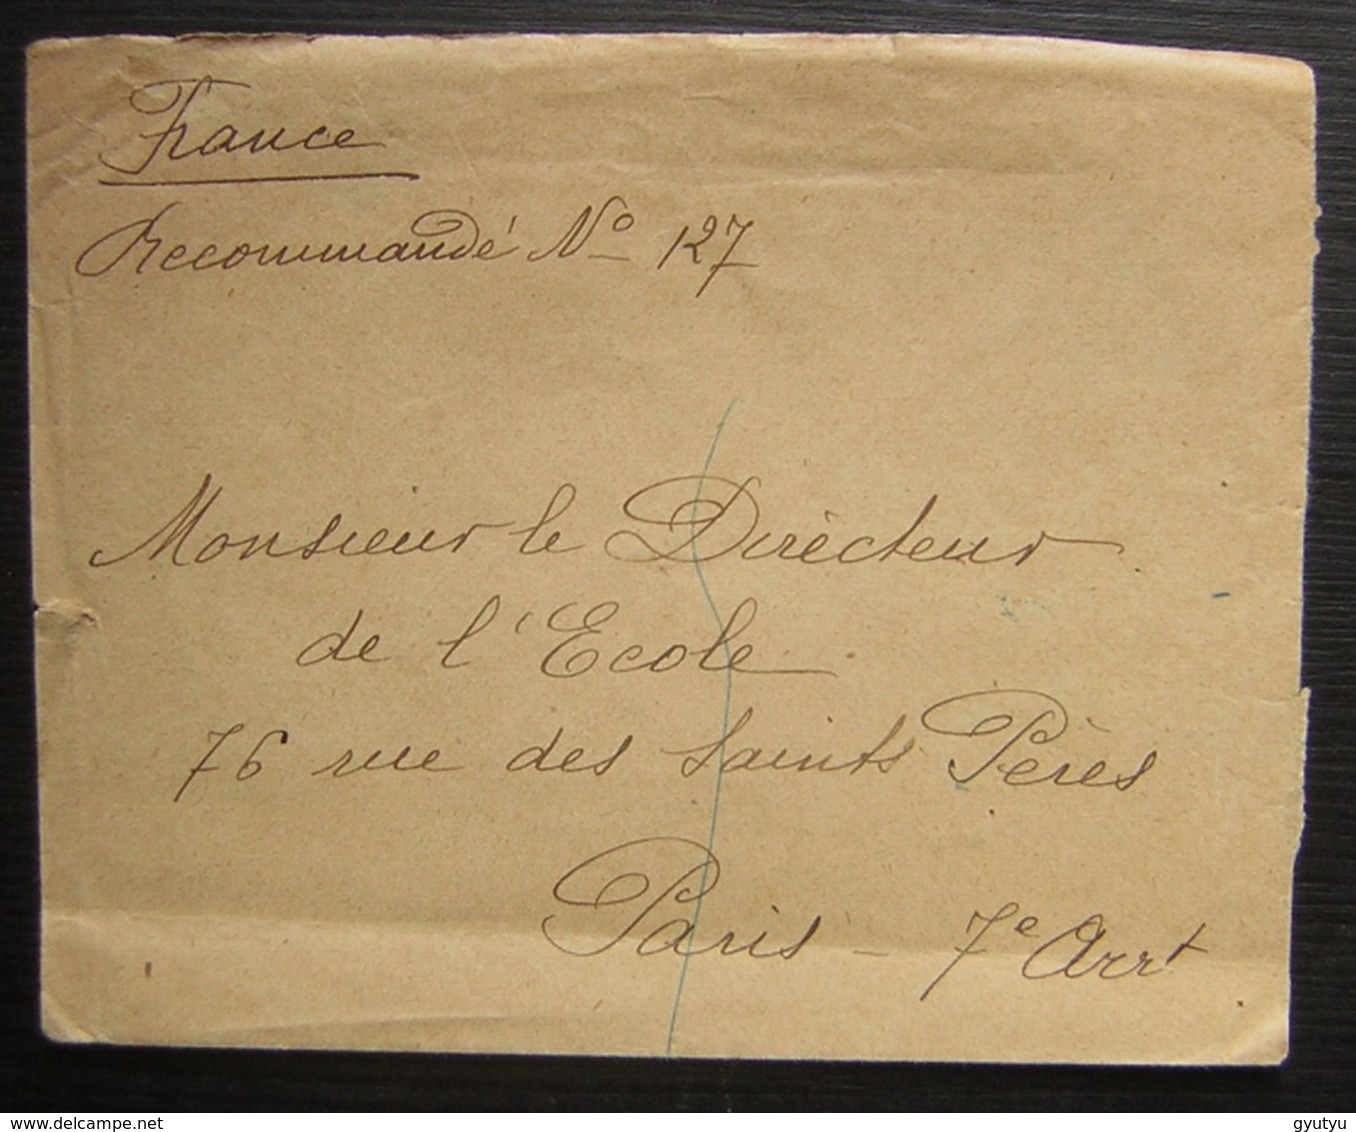 France
Recommandé No 127
Monsieur le Directeur
de l'Ecole
76 rue des Saints Pères
Paris - 7e Arrt
www.delcampe.net
gyutyu